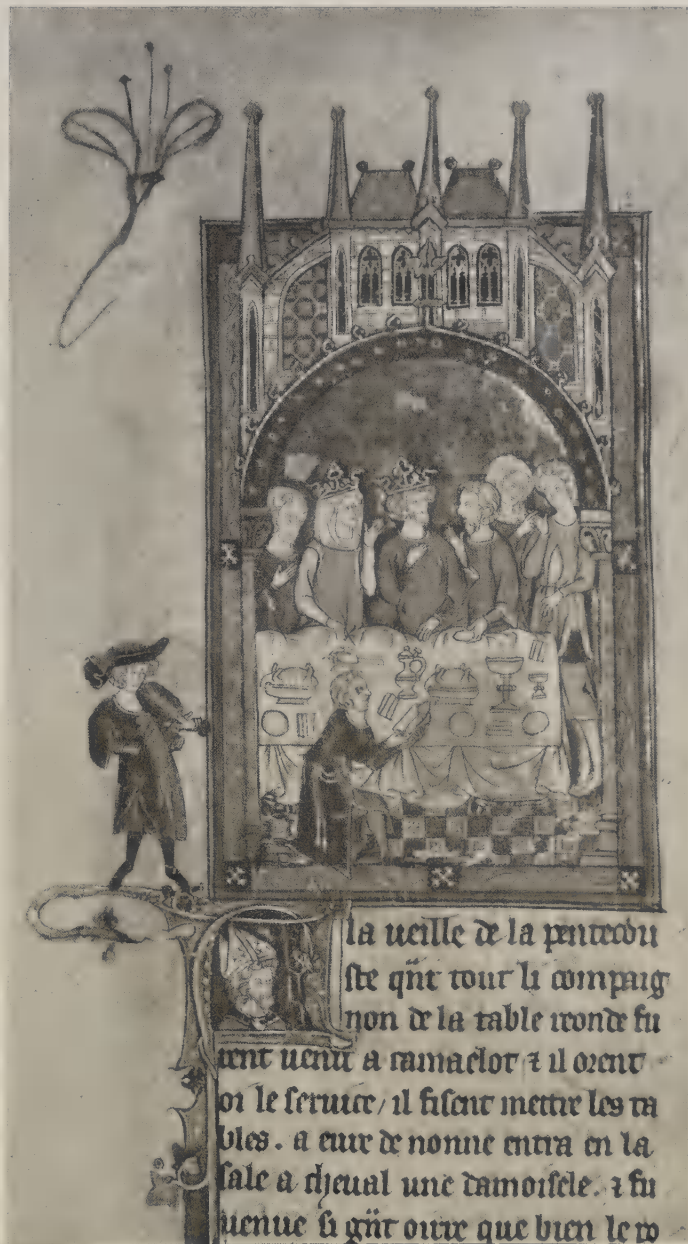 la ueille de la pentecou
ste qñt tout li compaig
non de la table reonde fu
rent uenu a camaelot ⁊ il orent
oi le seruice / il fisent mettre les ta
bles . a eure de nonne entra en la
sale a cheual une damoisele . ⁊ fu
uenue si gñt oirre que bien le po